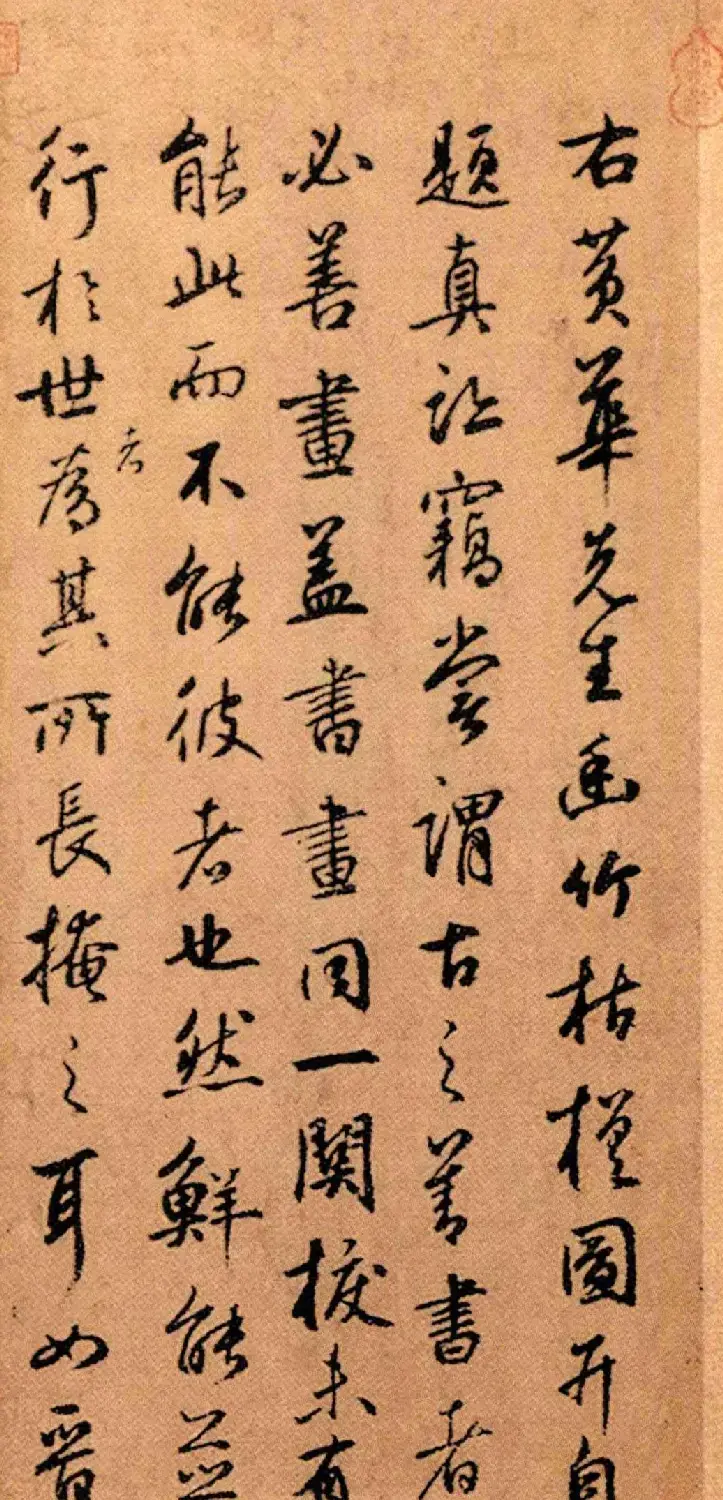 右黄華先生幽竹枯槎圖并自
題真訖竊嘗謂古之善書者
必善畫蓋書畫同一關捩未有
能此而不能彼者也然鮮能並
行於世者為其所長掩之耳如晉